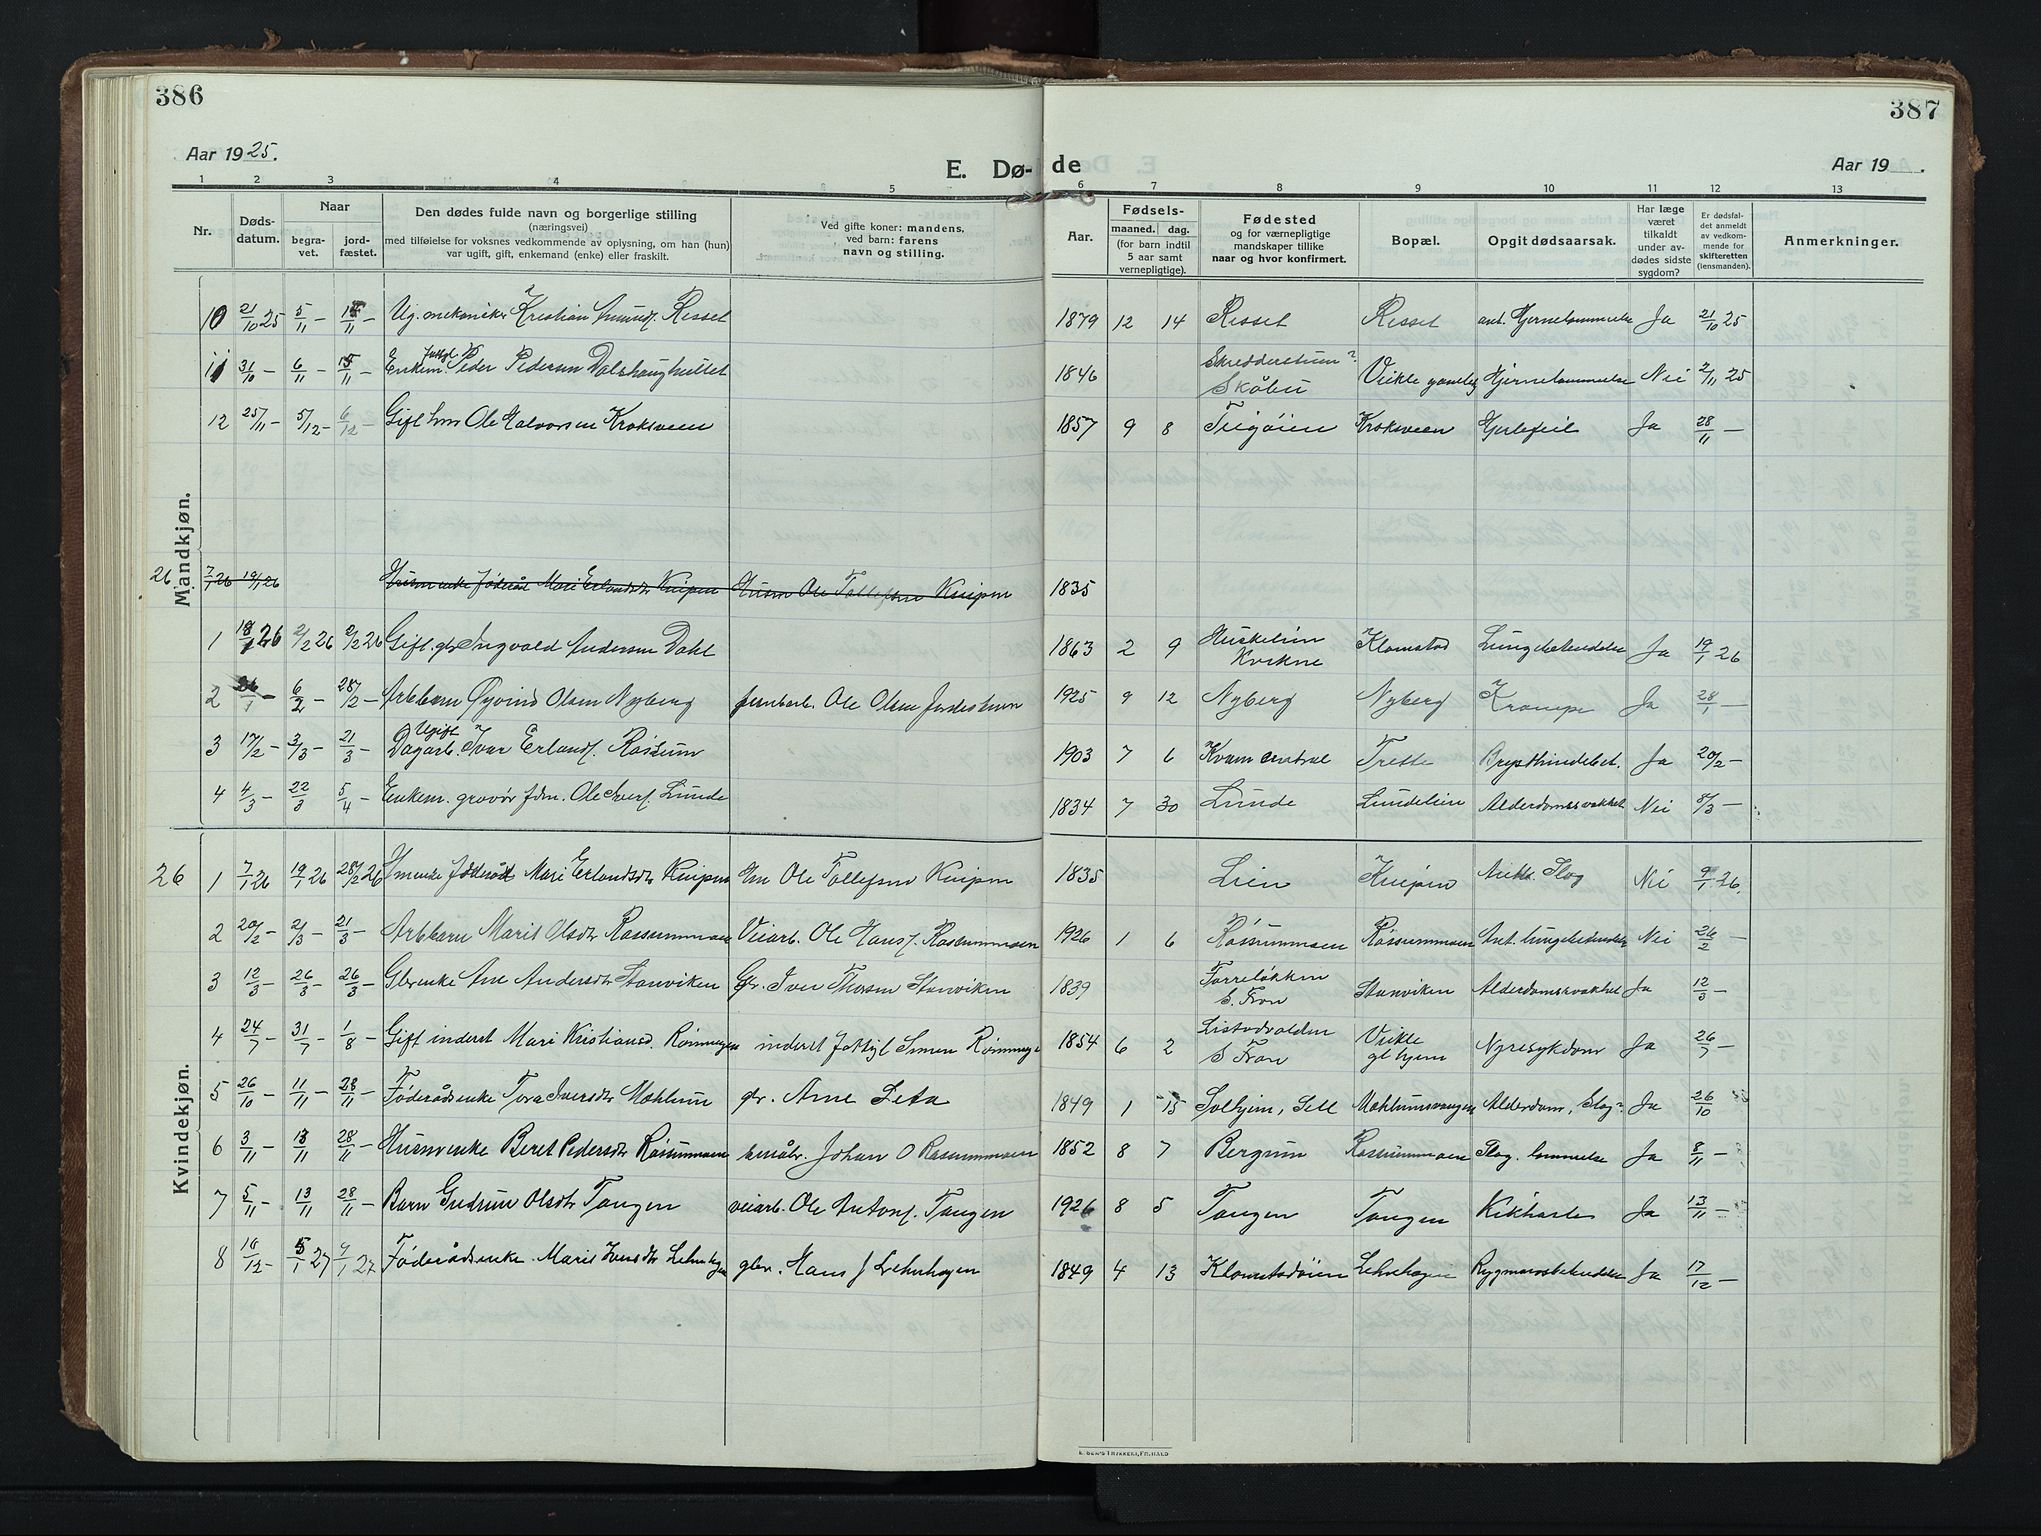 386
387
Aar 1925.
E. Dø-
de
Aar 19
1 2 3 4 5
6 7 8 9 10 11 12 13
Nr.
Døds-datum.
Naar
begra-vet.
jord-fæstet.
Den dødes fulde navn og borgerlige stilling
(næringsvei)
med tilføielse for voksnes vedkommende av oplysning, om han (hun)
var ugift, gift, enkemand (enke) eller fraskilt.
Ved gifte koner: mandens,
ved barn: farens
navn og stilling.
Aar.
Fødsels-
maaned. dag.
(for barn indtil
5 aar samt
vernepligtige).
Fødested
og for værnepligtige
mandskaper tillike
naar og hvor konfirmert.
Bopæl.
Opgit dødsaarsak.
Har læge
været
tilkaldt
under av-
dødes sidste
sygdom?
Er dødsfal-
det anmeldt
av vedkom-
mende for
skifteretten
(lensmanden).
Anmerkninger.
Mandkjøn.
10 21/10 25 5/11 - 15/11 - Ug. mekaniker Kristian Resset 1879 12 14 Resset Resset ant. Hjernelammelse Ja 21/10 25
11 31/10 - 6/11 - 15/11 - Enkem. Peder Pedersen Dalshaughultet 1846 Skåbu Vikle gamlehj Hjernelammelse Nei 2/11 25
12 25/11 - 5/12 - 6/12 - Gift hmr Ole Halvorsen Kroksveen 1857 9 8 Teigøien Kroksveen Hjertefeil Ja 28/11 -
26 7/1 26 19/1 26 Husmenke føderåd Mari Erlandsdtr Kuipen Husm Ole Tollefsen Kuipen 1835
1 18/1 26 2/2 26 2/2 26 Gift. gbr Ingvald Andersen Dahl 1863 2 9 Huskelien Kvikne Klomstad Lungebetendelse Ja 19/1 26
2 26/1 - 6/2 - 28/2 - Arbbarn Øyvind Olsen Nyberg jernbarb. Ole Olsen 1925 9 12 Nyberg Nyberg Krampe Ja 28/1 -
3 17/2 - 3/3 - 21/3 - Ugift Dagarb. Ivar Erlandf. Røssum 1903 7 6 Kvam central Trette Brysthindebet. Ja 20/2 -
4 4/3 - 22/3 5/4 - Enkem. gravør fdm. Ole Iverf. Lunde 1834 7 30 Lunde Lundelien Alderdomssvakhet Nei 8/3 -
Kvindekjøn.
26 1 7/1 26 19/1 26 28/2 26 Hmenke føderåd Mari Erlandsdtr Kuipen Hm Ole Tollefsen Kuipen 1835 Lien Kuipen Slag Nei 9/1 26.
2 20/2 - 2/3 - 21/3 - Arbbarn Marit Olsdtr Røssummoen Veiarb. Ole Hansf. Røssummoen 1926 1 6 Røssummoen Røssummoen Ant. lungebetendelse Nei 26/2 -
3 12/3 - 26/3 - 26/3 - Gbrenke Ane Andersdtr Stanviken Gr. Iver Thorsen Stanviken 1839 Torreløkken S. Fron Stanviken Alderdomssvakhet Ja 12/3 -
4 24/7 - 31/7 - 1/8 - Gift inderst Mari Kristiansd. Rønningen inderst fattigl Simen 1854 6 2 S Fron Vikle glhjem Nyresykdom Ja 26/7 -
5 26/10 - 11/11 - 28/11 - Føderådsenke Tora Iversdtr Mæhlum gbr. Arne 1849 1 15 Solhjem, Sell Mæhlumsvangen Alderdom, Slag? Ja 26/10
6 3/11 - 13/11 - 28/11 - Husmenke Beret Pedersdtr Røssummoen småbr. Johan O Røssummoen 1852 8 7 Bergum Røssummoen Slag. lammelse Ja 8/11 -
7 5/11 - 13/11 - 28/11 - Barn Gudrun Olsdtr Tangen veiarb. Ole Antonf. Tangen 1926 8 5 Tangen Tangen Kikhoste Ja 13/11 -
8 10/12 - 5/1 27 9/1 27 Føderådsenke Marit Iversdtr Lehnhagen gbr. Hans J Lehnhagen 1849 4 13 Klomstadøien Lehnhagen Rygmarvsbetendelse Ja 17/12 -